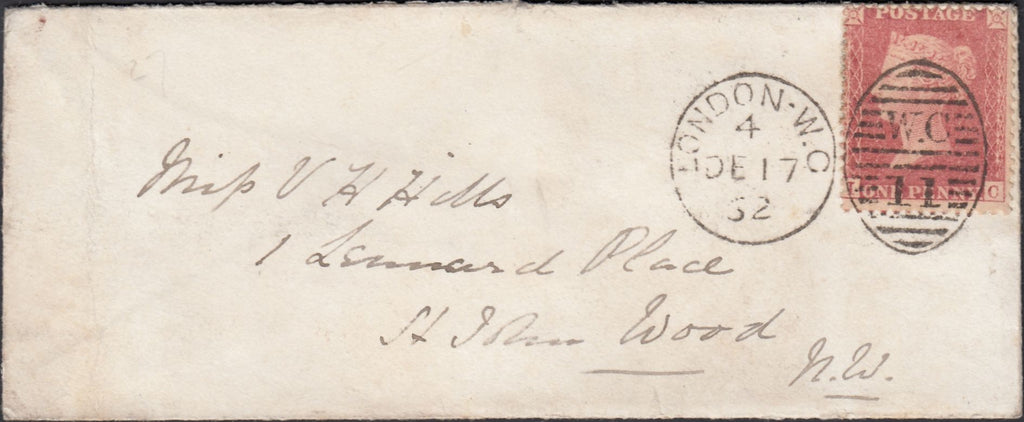 POSTAGE
LONDON-W.C
4
DE 17
62
W.C
11
ONE PENNY
C
Miss V H Hills
1 Lennard Place
St John Wood
N.W.